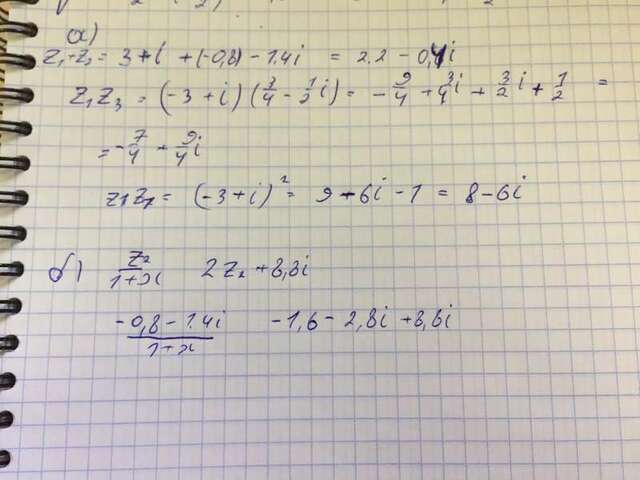 а)
z₁-z₂ = 3+i + (-0,8) - 1.4i = 2.2 - 0,4i
z₁z₃ = (-3+i)(3/4 - 1/2i) = -9/4 + 3/4i + 3/2i + 1/2 =
= -7/4 + 9/4i
z₁z₁ = (-3+i)² = 9-6i-1 = 8-6i
б) z₂/1+зi 2z₂+3,3i
-0,8-1.4i/1+зi -1,6-2,8i+3,3i